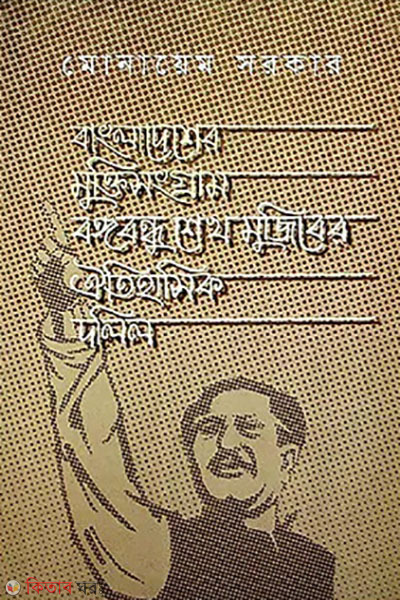 মোনায়েম সরকার
বাংলাদেশের
মুক্তিসংগ্রাম
বঙ্গবন্ধু শেখ মুজিবের
ঐতিহাসিক
দলিল
কিতাব ঘর